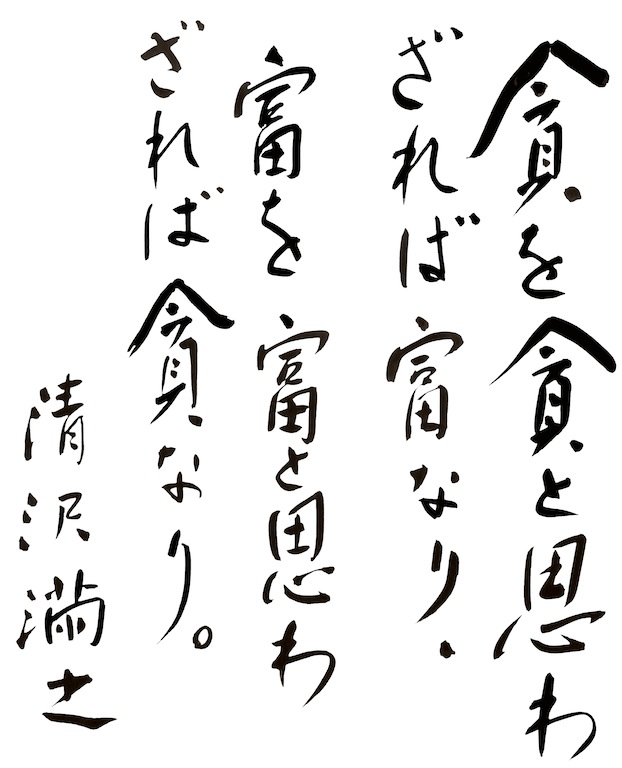 貪を貪と思わ
ざれば富なり.
富を富と思わ
ざれば貪なり。
清沢満之